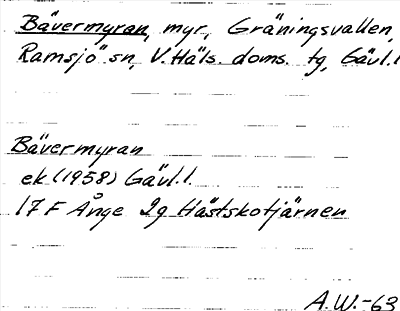 Bävermyran, myr, Gräningsvallen,
Ramsjö sn, V. Häls. doms. tg, Gävl.l
Bävermyran
ek (1958) Gävl.l.
17 F Ånge 2g Hästskotjärnen
A.W.-63